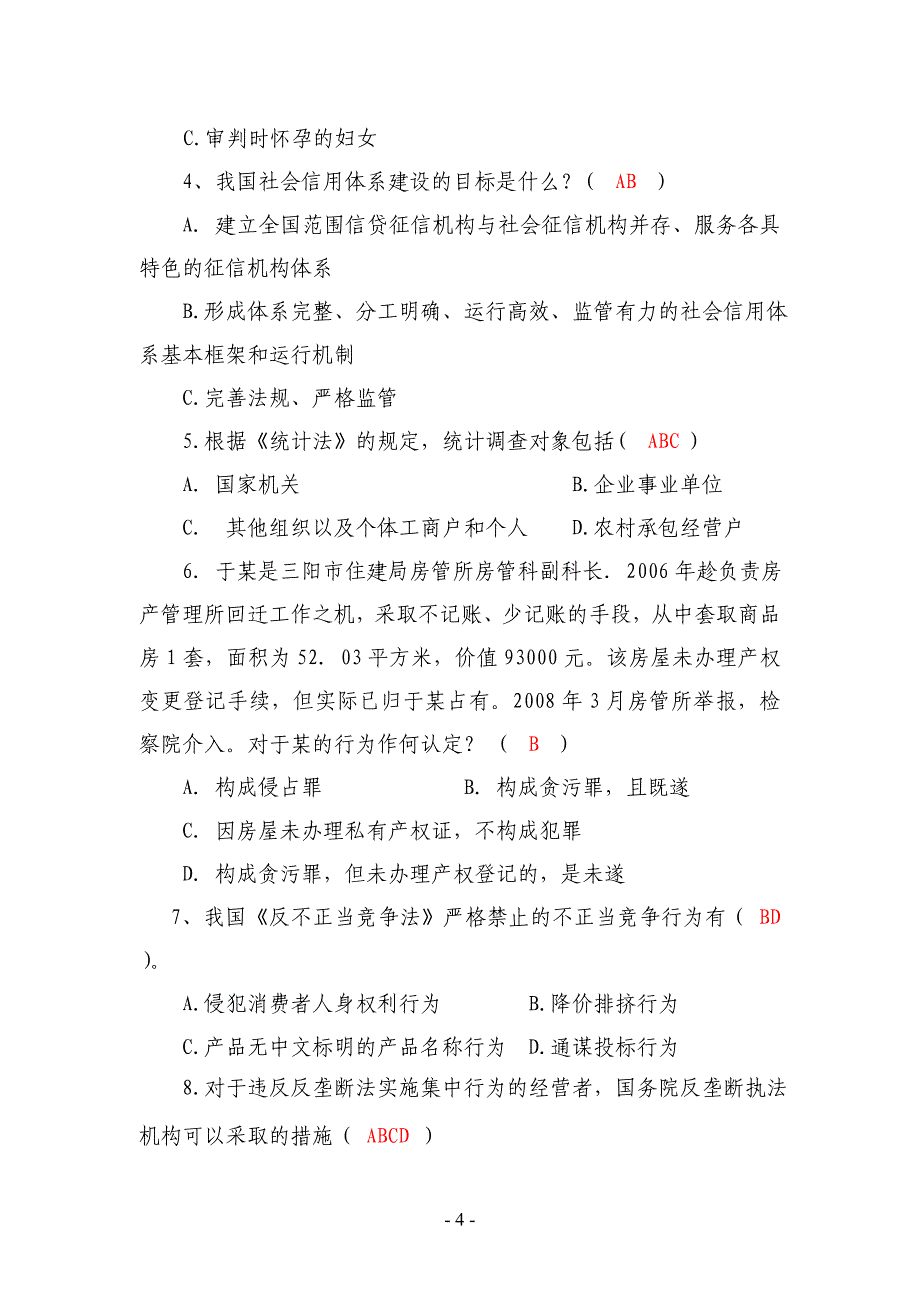 C.审判时怀孕的妇女
4、我国社会信用体系建设的目标是什么?( AB )
A. 建立全国范围信贷征信机构与社会征信机构并存、服务各具
特色的征信机构体系
B.形成体系完整、分工明确、运行高效、监管有力的社会信用体
系基本框架和运行机制
C.完善法规、严格监管
5.根据《统计法》的规定,统计调查对象包括( ABC )
A. 国家机关 B.企业事业单位
C. 其他组织以及个体工商户和个人 D.农村承包经营户
6. 于某是三阳市住建局房管所房管科副科长. 2006 年趁负责房
产管理所回迁工作之机,采取不记账、少记账的手段,从中套取商品
房 1 套,面积为 52. 03 平方米,价值 93000 元。该房屋未办理产权
变更登记手续,但实际已归于某占有。2008 年 3 月房管所举报,检
察院介入。对于某的行为作何认定? ( B )
A. 构成侵占罪 B. 构成贪污罪,且既遂
C. 因房屋未办理私有产权证,不构成犯罪
D. 构成贪污罪,但未办理产权登记的,是未遂
7、我国《反不正当竞争法》严格禁止的不正当竞争行为有( BD
)。
A.侵犯消费者人身权利行为 B.降价排挤行为
C.产品无中文标明的产品名称行为 D.通谋投标行为
8.对于违反反垄断法实施集中行为的经营者,国务院反垄断执法
机构可以采取的措施( ABCD )
- 4 -